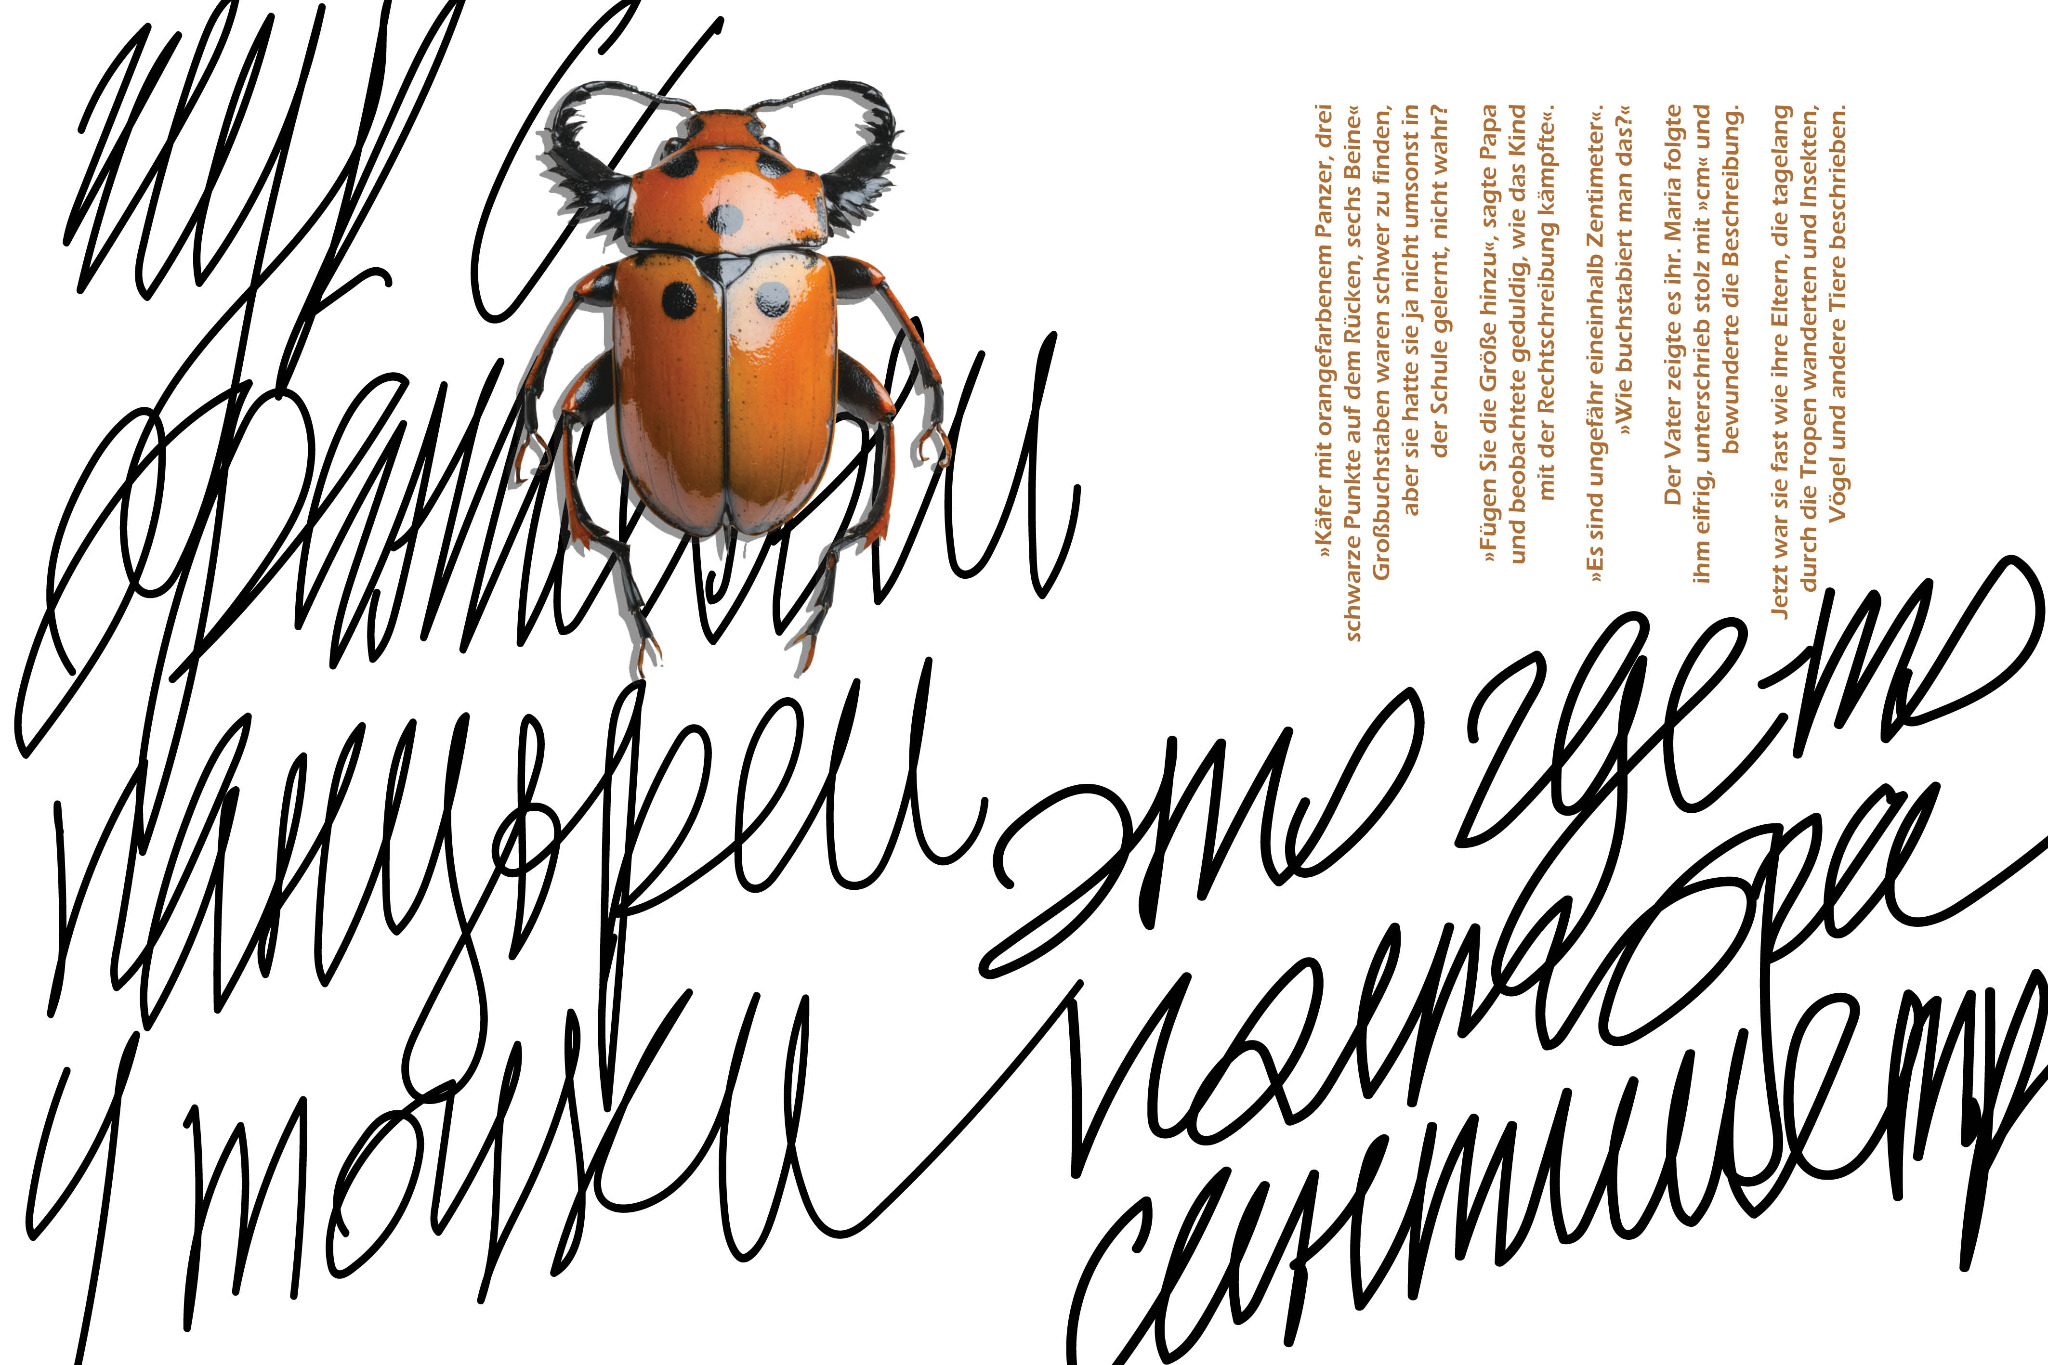 жук с
оранжевым
панцырем
3 точки
это где то
полтора
сантиметр
»Käfer mit orangefarbenem Panzer, drei
schwarze Punkte auf dem Rücken, sechs Beine«
Großbuchstaben waren schwer zu finden,
aber sie hatte sie ja nicht umsonst in
der Schule gelernt, nicht wahr?
»Fügen Sie die Größe hinzu«, sagte Papa
und beobachtete geduldig, wie das Kind
mit der Rechtschreibung kämpfte«.
»Es sind ungefähr eineinhalb Zentimeter«.
»Wie buchstabiert man das?«
Der Vater zeigte es ihr. Maria folgte
ihm eifrig, unterschrieb stolz mit »cm« und
bewunderte die Beschreibung.
Jetzt war sie fast wie ihre Eltern, die tagelang
durch die Tropen wanderten und Insekten,
Vögel und andere Tiere beschrieben.